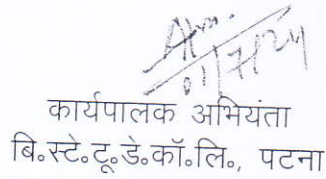 01/7/24
कार्यपालक अभियंता
बि॰स्टे॰टू॰डे॰कॉ॰लि॰, पटना